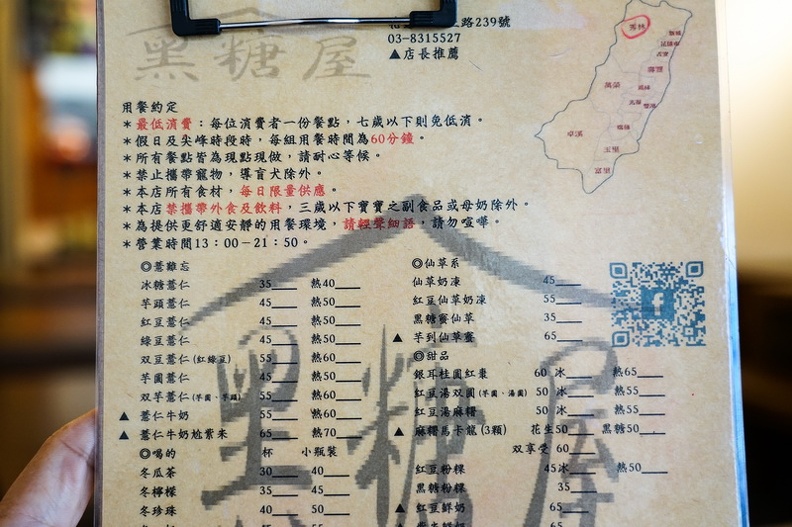 黑糖屋
路239號
03-8315527
▲店長推薦
用餐約定
＊最低消費：每位消費者一份餐點，七歲以下則免低消。
＊假日及尖峰時段時，每組用餐時間為60分鐘。
＊所有餐點皆為現點現做，請耐心等候。
＊禁止攜帶寵物，導盲犬除外。
＊本店所有食材，每日限量供應。
＊本店禁攜帶外食及飲料，三歲以下寶寶之副食品或母奶除外。
＊為提供更舒適安靜的用餐環境，請輕聲細語，請勿喧嘩。
＊營業時間13：00-21：50。
◎薏難忘
冰糖薏仁 35___ 熱40___
芋頭薏仁 45___ 熱50___
紅豆薏仁 45___ 熱50___
綠豆薏仁 45___ 熱50___
双豆薏仁(紅綠豆) 55___ 熱60___
芋圓薏仁 45___ 熱50___
双芋薏仁(芋圓、芋頭) 55___ 熱60___
▲ 薏仁牛奶 55___ 熱60___
▲ 薏仁牛奶尬紫米 65___ 熱70___
◎喝的 杯 小瓶裝
冬瓜茶 30___ 40___
冬檸檬 35___ 45___
冬珍珠 40___ 50___
◎仙草系
仙草奶凍 45___
紅豆仙草奶凍 55___
黑糖蜜仙草 35___
▲ 芋到仙草蜜 65___
◎甜品
銀耳桂圓紅棗 60 冰___ 熱65___
紅豆湯双圓(芋圓、湯圓) 50 冰___ 熱55___
紅豆湯麻糬 50 冰___ 熱55___
▲ 麻糬馬卡龍(3顆) 花生50___ 黑糖50___
双享受 60___
紅豆粉粿 45冰___ 熱50___
黑糖粉粿 35___
▲ 紅豆鮮奶 65___
秀林
萬榮
卓溪
玉里
富里